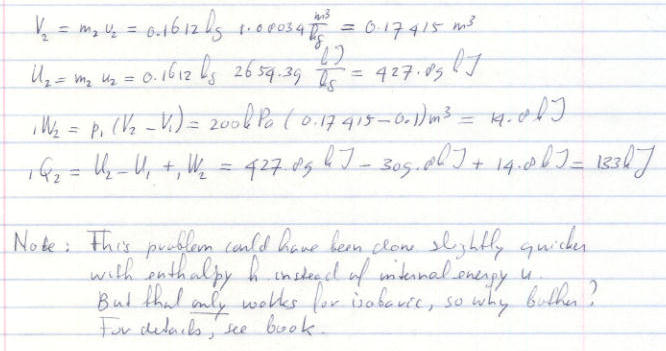 V₂ = m₂ υ₂ = 0.1612 kg 1.08034 m³/kg = 0.17415 m³
U₂ = m₂ u₂ = 0.1612 kg 2654.39 kJ/kg = 427.89 kJ
₁W₂ = p₁ (V₂ − V₁) = 200 kPa (0.17415−0.1) m³ = 14.8 kJ
₁Q₂ = U₂ − U₁ + ₁W₂ = 427.89 kJ − 309.8 kJ + 14.8 kJ = 133 kJ
Note : This problem could have been done slightly quicker
with enthalpy h instead of internal energy u.
But that only works for isobaric, so why bother?
For details, see book.